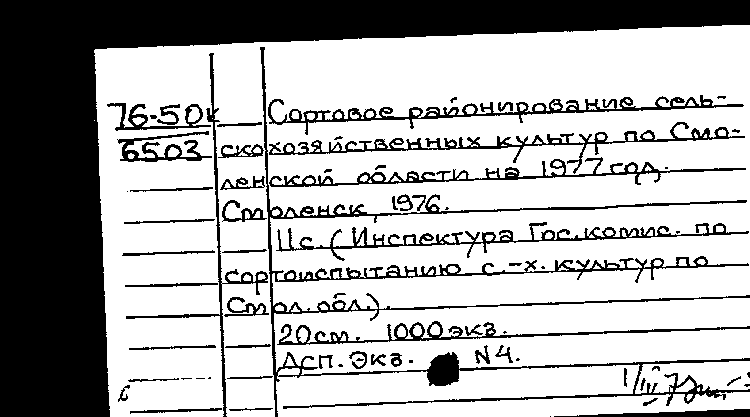 76-50к Сортовое районирование сель-
6503 скохозяйственных культур по Смо-
ленской области на 1977 год.
Смоленск, 1976.
11с. (Инспектура Гос.комис. по
сортоиспытанию с.-х. культур по
Смол. обл.).
20см. 1000 экз.
N4.